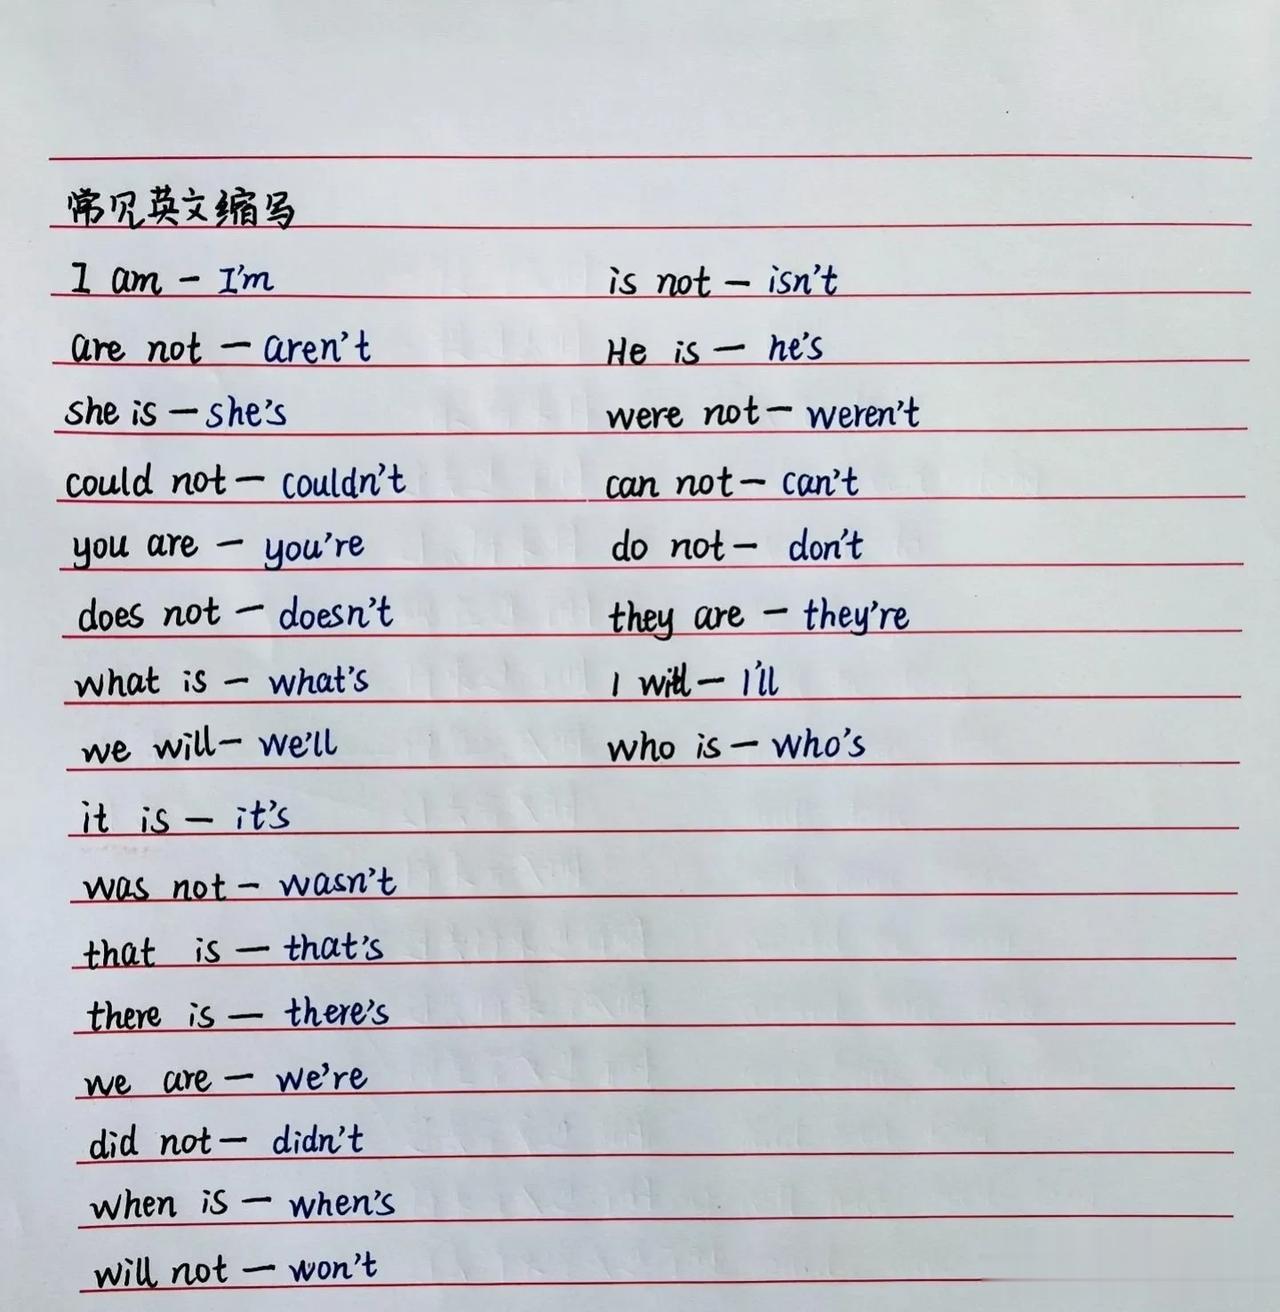 常见英文缩写
I am - I'm is not - isn't
are not - aren't He is - he's
she is - she's were not - weren't
could not - couldn't can not - can't
you are - you're do not - don't
does not - doesn't they are - they're
what is - what's I will - I'll
we will - we'll who is - who's
it is - it's
was not - wasn't
that is - that's
there is - there's
we are - we're
did not - didn't
when is - when's
will not - won't